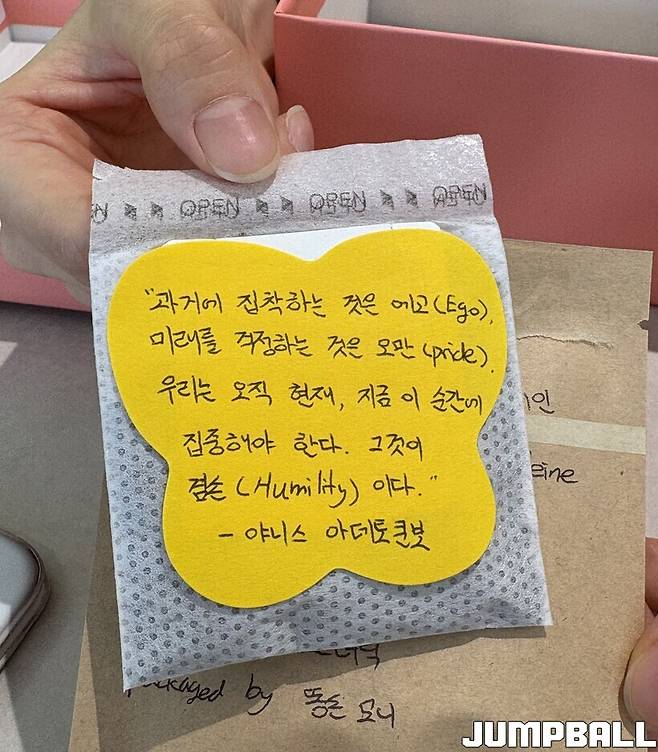 OPEN OPEN OPEN
"과거에 집착하는 것은 에고(Ego),
미래를 걱정하는 것은 오만(pride).
우리는 오직 현재, 지금 이 순간에
집중해야 한다. 그것이
겸손(Humility) 이다."
- 야니스 아데토쿤보
인
eine
packaged by 똥손 모니
JUMPBALL